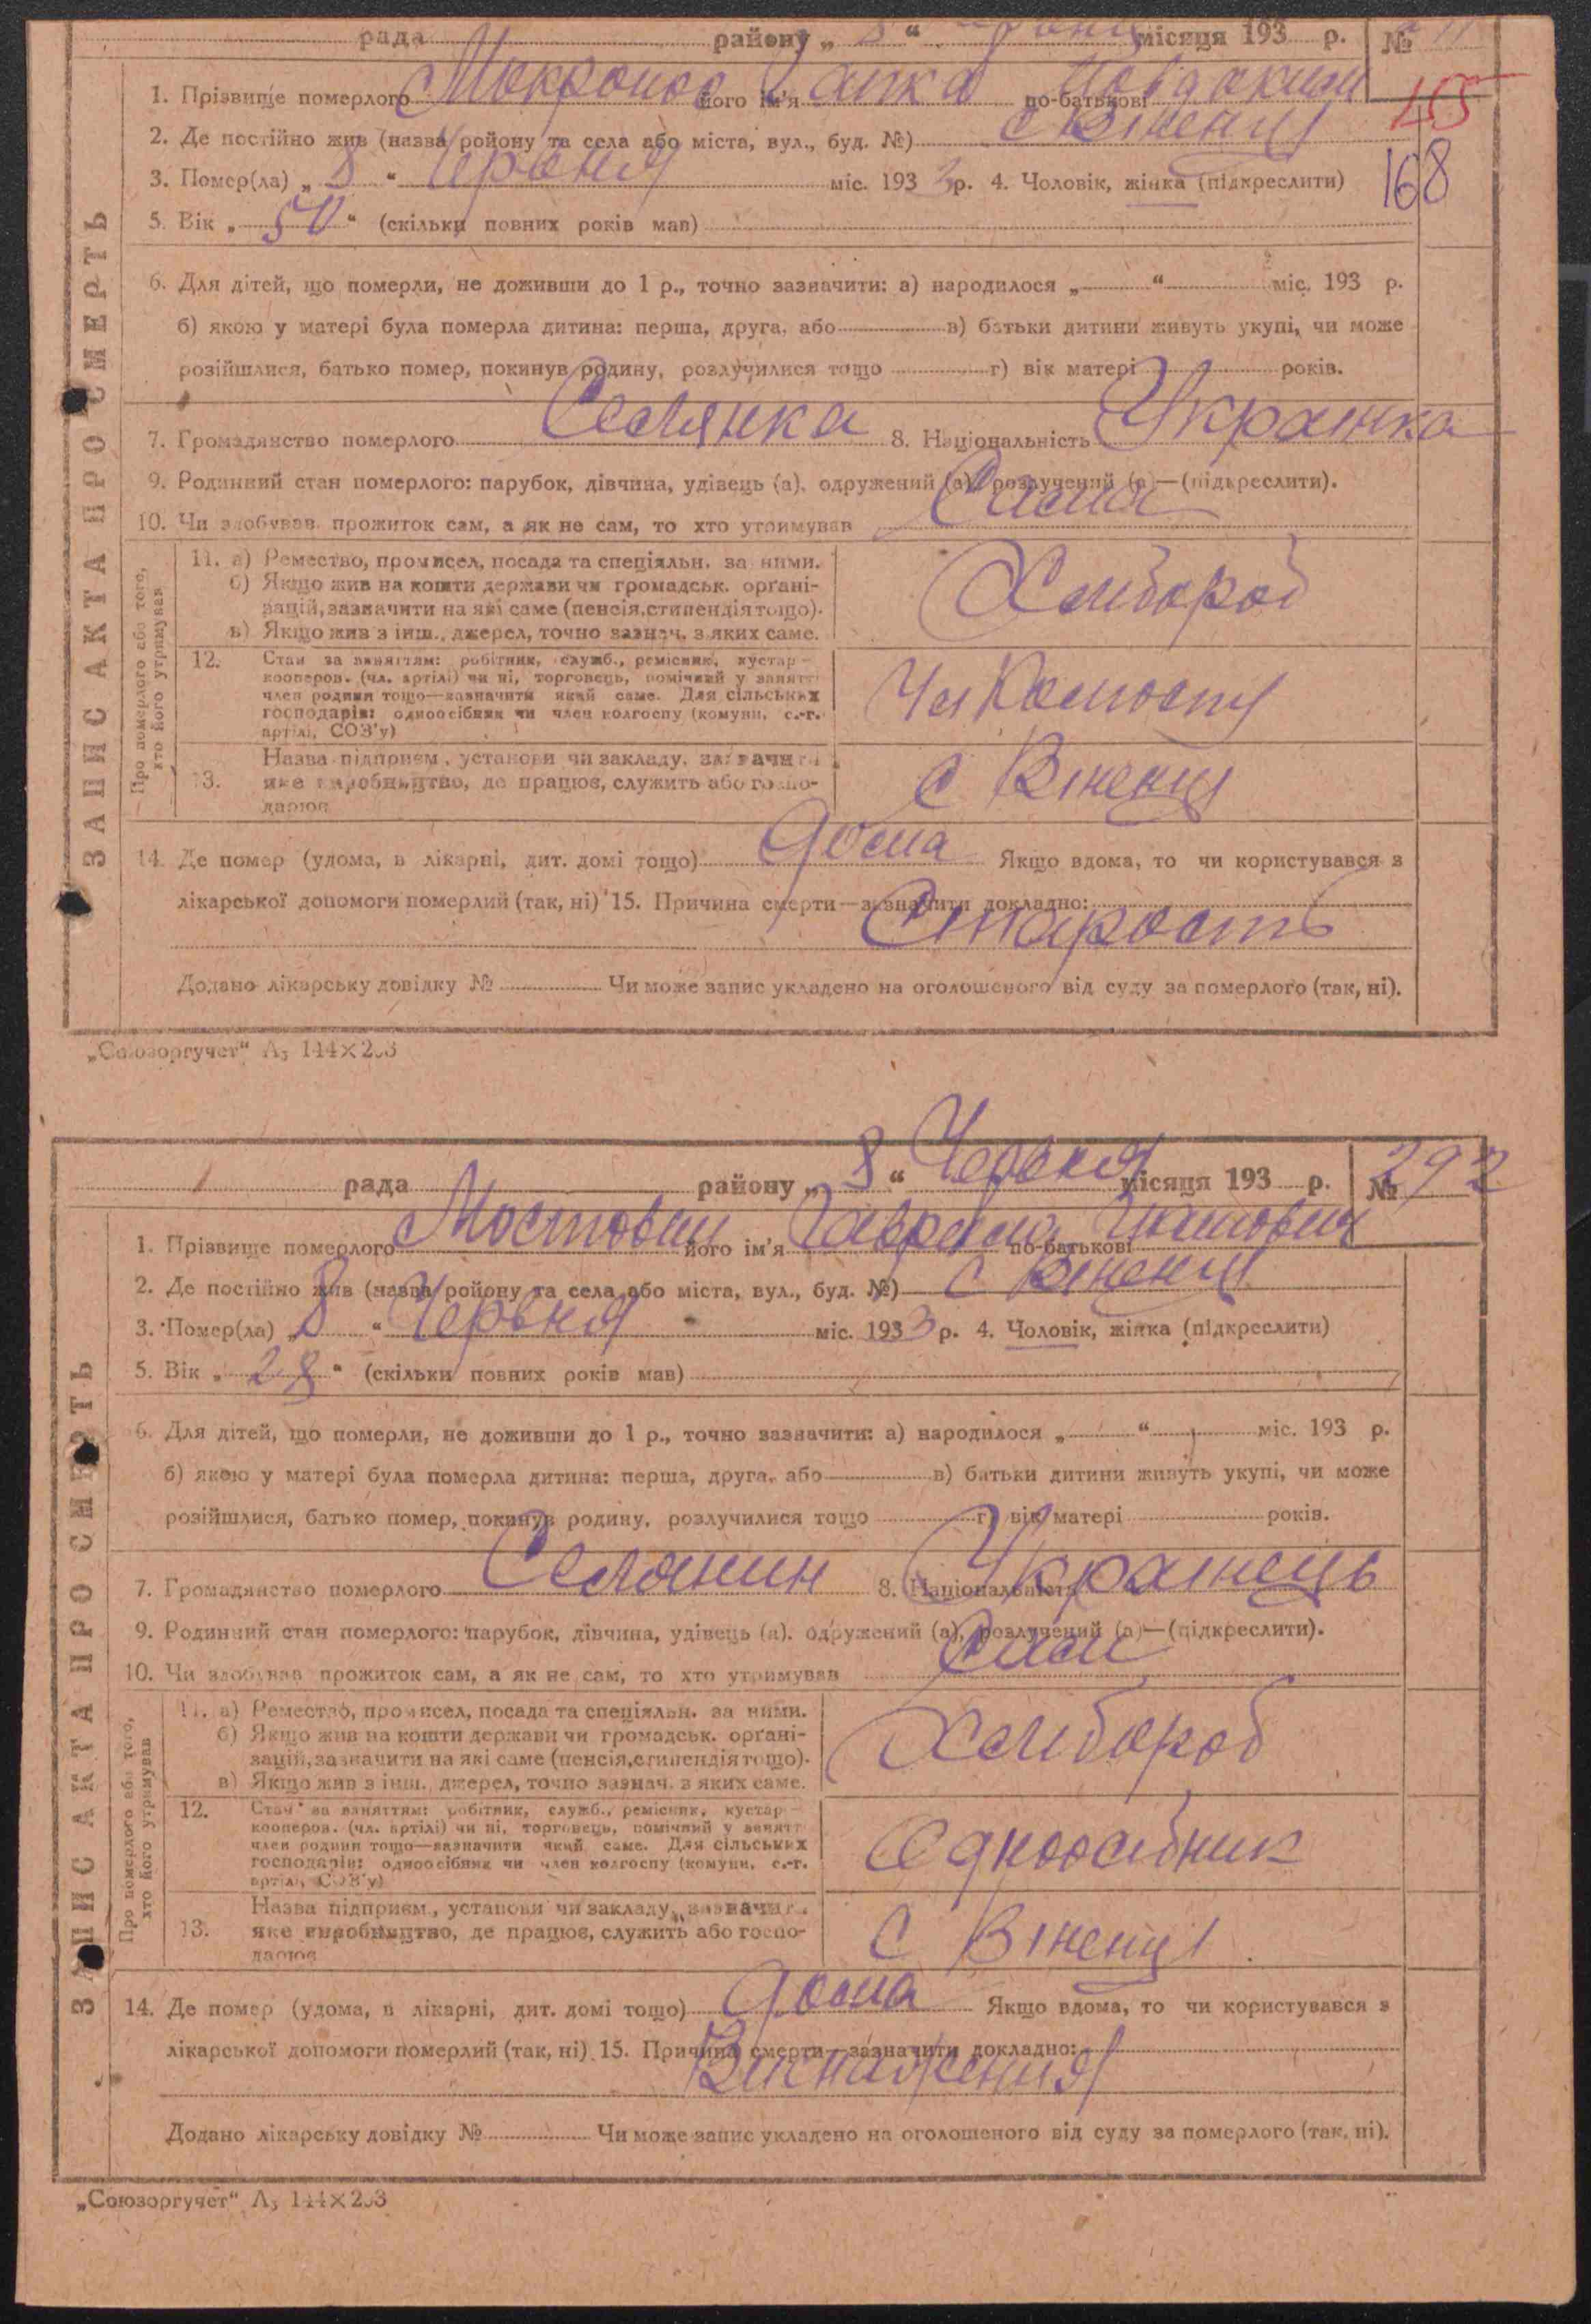 рада району „ 8 “ місяця 193 р. №
1. Прізвище померлого Мокронос його ім'я Ганка по-батькові
45
2. Де постійно жив (назва ройону та села або міста, вул., буд. №) с Віненці
3. Помер(ла) „ 8 “ Червня міс. 1933 р. 4. Чоловік, жінка (підкреслити)
168
5. Вік „ 50 “ (скільки повних років мав)
6. Для дітей, що померли, не доживши до 1 р., точно зазначити: а) народилося „ “ міс. 193 р.
б) якою у матері була померла дитина: перша, друга, або в) батьки дитини живуть укупі, чи може
розійшлися, батько помер, покинув родину, розлучилися тощо г) вік матері років.
7. Громадянство померлого Селянка 8. Національність Українка
9. Родинний стан померлого: парубок, дівчина, удівець (а), одружений (а), розлучений (а)—(підкреслити).
10. Чи здобував прожиток сам, а як не сам, то хто утримував Сама
ЗАПИС АКТА ПРО СМЕРТЬ
Про померлого або того, хто його утримував
11. а) Ремество, промисел, посада та спеціяльн. за ними.
б) Якщо жив на кошти держави чи громадськ. органі-
зацій, зазначити на які саме (пенсія, стипендія тощо).
в) Якщо жив з інш., джерел, точно зазнач. з яких саме.
Хлибороб
12. Стан за заняттям: робітник, служб., ремісник, кустар—
кооперов. (чл. артілі) чи ні, торговець, помічний у занятт
член родини тощо—зазначити який саме. Для сільських
господарів: одноосібник чи член колгоспу (комуни, с.-г.
артілі, СОЗ'у)
Чл Колгоспу
13. Назва підприєм., установи чи закладу, зазначити
яке виробництво, де працює, служить або госпо-
дарює
с Віненці
14. Де помер (удома, в лікарні, дит. домі тощо) Дома Якщо вдома, то чи користувався з
лікарської допомоги померлий (так, ні) 15. Причина смерти—зазначити докладно:
Старость
Додано лікарську довідку № Чи може запис укладено на оголошеного від суду за померлого (так, ні).
„Союзоргучет“ А₅ 144×203
рада району „ 8 “ Червня місяця 193 р. № 292
1. Прізвище померлого Мостовий його ім'я Гаврило по-батькові
2. Де постійно жив (назва ройону та села або міста, вул., буд. №) с Віненці
3. Помер(ла) „ 8 “ Червня міс. 1933 р. 4. Чоловік, жінка (підкреслити)
5. Вік „ 28 “ (скільки повних років мав)
6. Для дітей, що померли, не доживши до 1 р., точно зазначити: а) народилося „ “ міс. 193 р.
б) якою у матері була померла дитина: перша, друга, або в) батьки дитини живуть укупі, чи може
розійшлися, батько помер, покинув родину, розлучилися тощо г) вік матері років.
7. Громадянство померлого Селянин 8. Національність Українець
9. Родинний стан померлого: парубок, дівчина, удівець (а), одружений (а), розлучений (а)—(підкреслити).
10. Чи здобував прожиток сам, а як не сам, то хто утримував Сам
ЗАПИС АКТА ПРО СМЕРТЬ
Про померлого або того, хто його утримував
11. а) Ремество, промисел, посада та спеціяльн. за ними.
б) Якщо жив на кошти держави чи громадськ. органі-
зацій, зазначити на які саме (пенсія, стипендія тощо).
в) Якщо жив з інш., джерел, точно зазнач. з яких саме.
Хлибороб
12. Стан за заняттям: робітник, служб., ремісник, кустар—
кооперов. (чл. артілі) чи ні, торговець, помічний у занятт
член родини тощо—зазначити який саме. Для сільських
господарів: одноосібник чи член колгоспу (комуни, с.-г.
артілі, СОЗ'у)
Одноосібник
13. Назва підприєм., установи чи закладу, зазначити
яке виробництво, де працює, служить або госпо-
дарює
с Віненці
14. Де помер (удома, в лікарні, дит. домі тощо) Дома Якщо вдома, то чи користувався з
лікарської допомоги померлий (так, ні) 15. Причина смерти—зазначити докладно:
Виснаження
Додано лікарську довідку № Чи може запис укладено на оголошеного від суду за померлого (так, ні).
„Союзоргучет“ А₅ 144×203